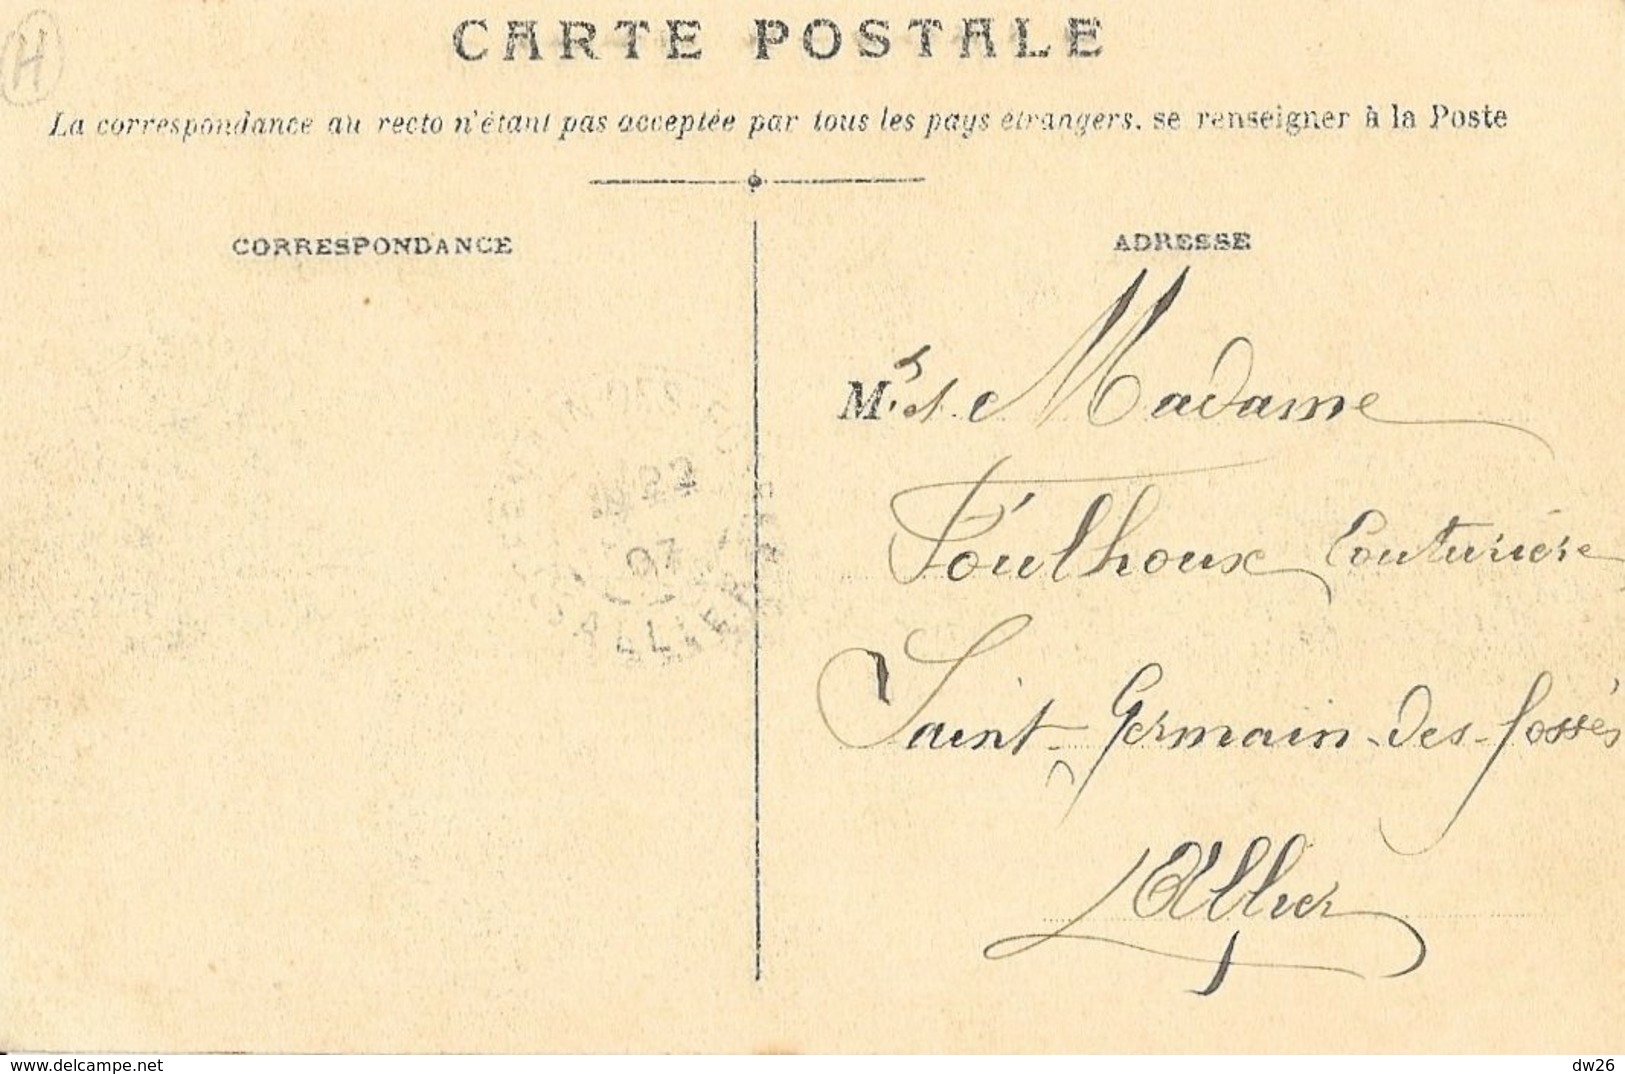 H
CARTE POSTALE
La correspondance au recto n'étant pas acceptée par tous les pays étrangers, se renseigner à la Poste
CORRESPONDANCE
ADRESSE
Mr et Madame
Foulhoux Couturière
Saint-Germain-des-fossés
Allier
22
07
ALLIER
www.delcampe.net
dw26